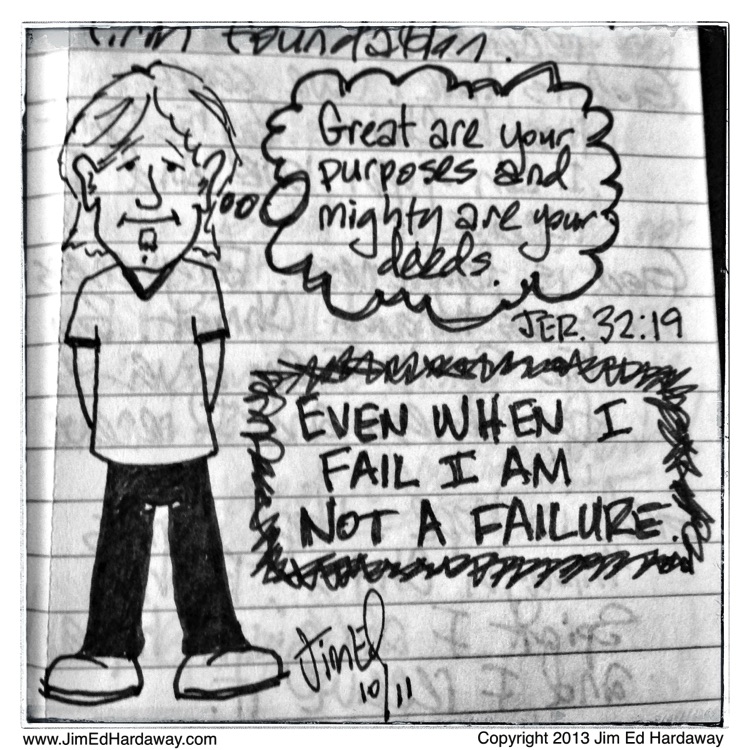 firm foundation.
Great are your
purposes and
mighty are your
deeds.
JER. 32:19
EVEN WHEN I
FAIL I AM
NOT A FAILURE.
JimEd
10 11
www.JimEdHardaway.com
Copyright 2013 Jim Ed Hardaway